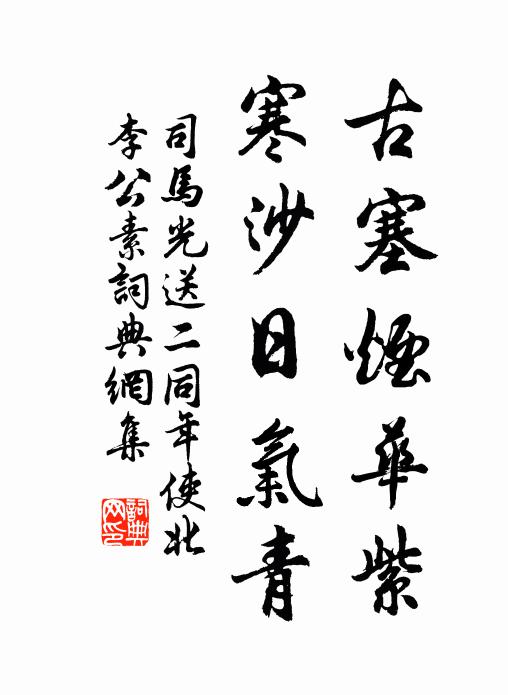 古塞煙華紫
寒沙日氣青
司馬光送二同年使北
李公素詞典網集
詞典网印